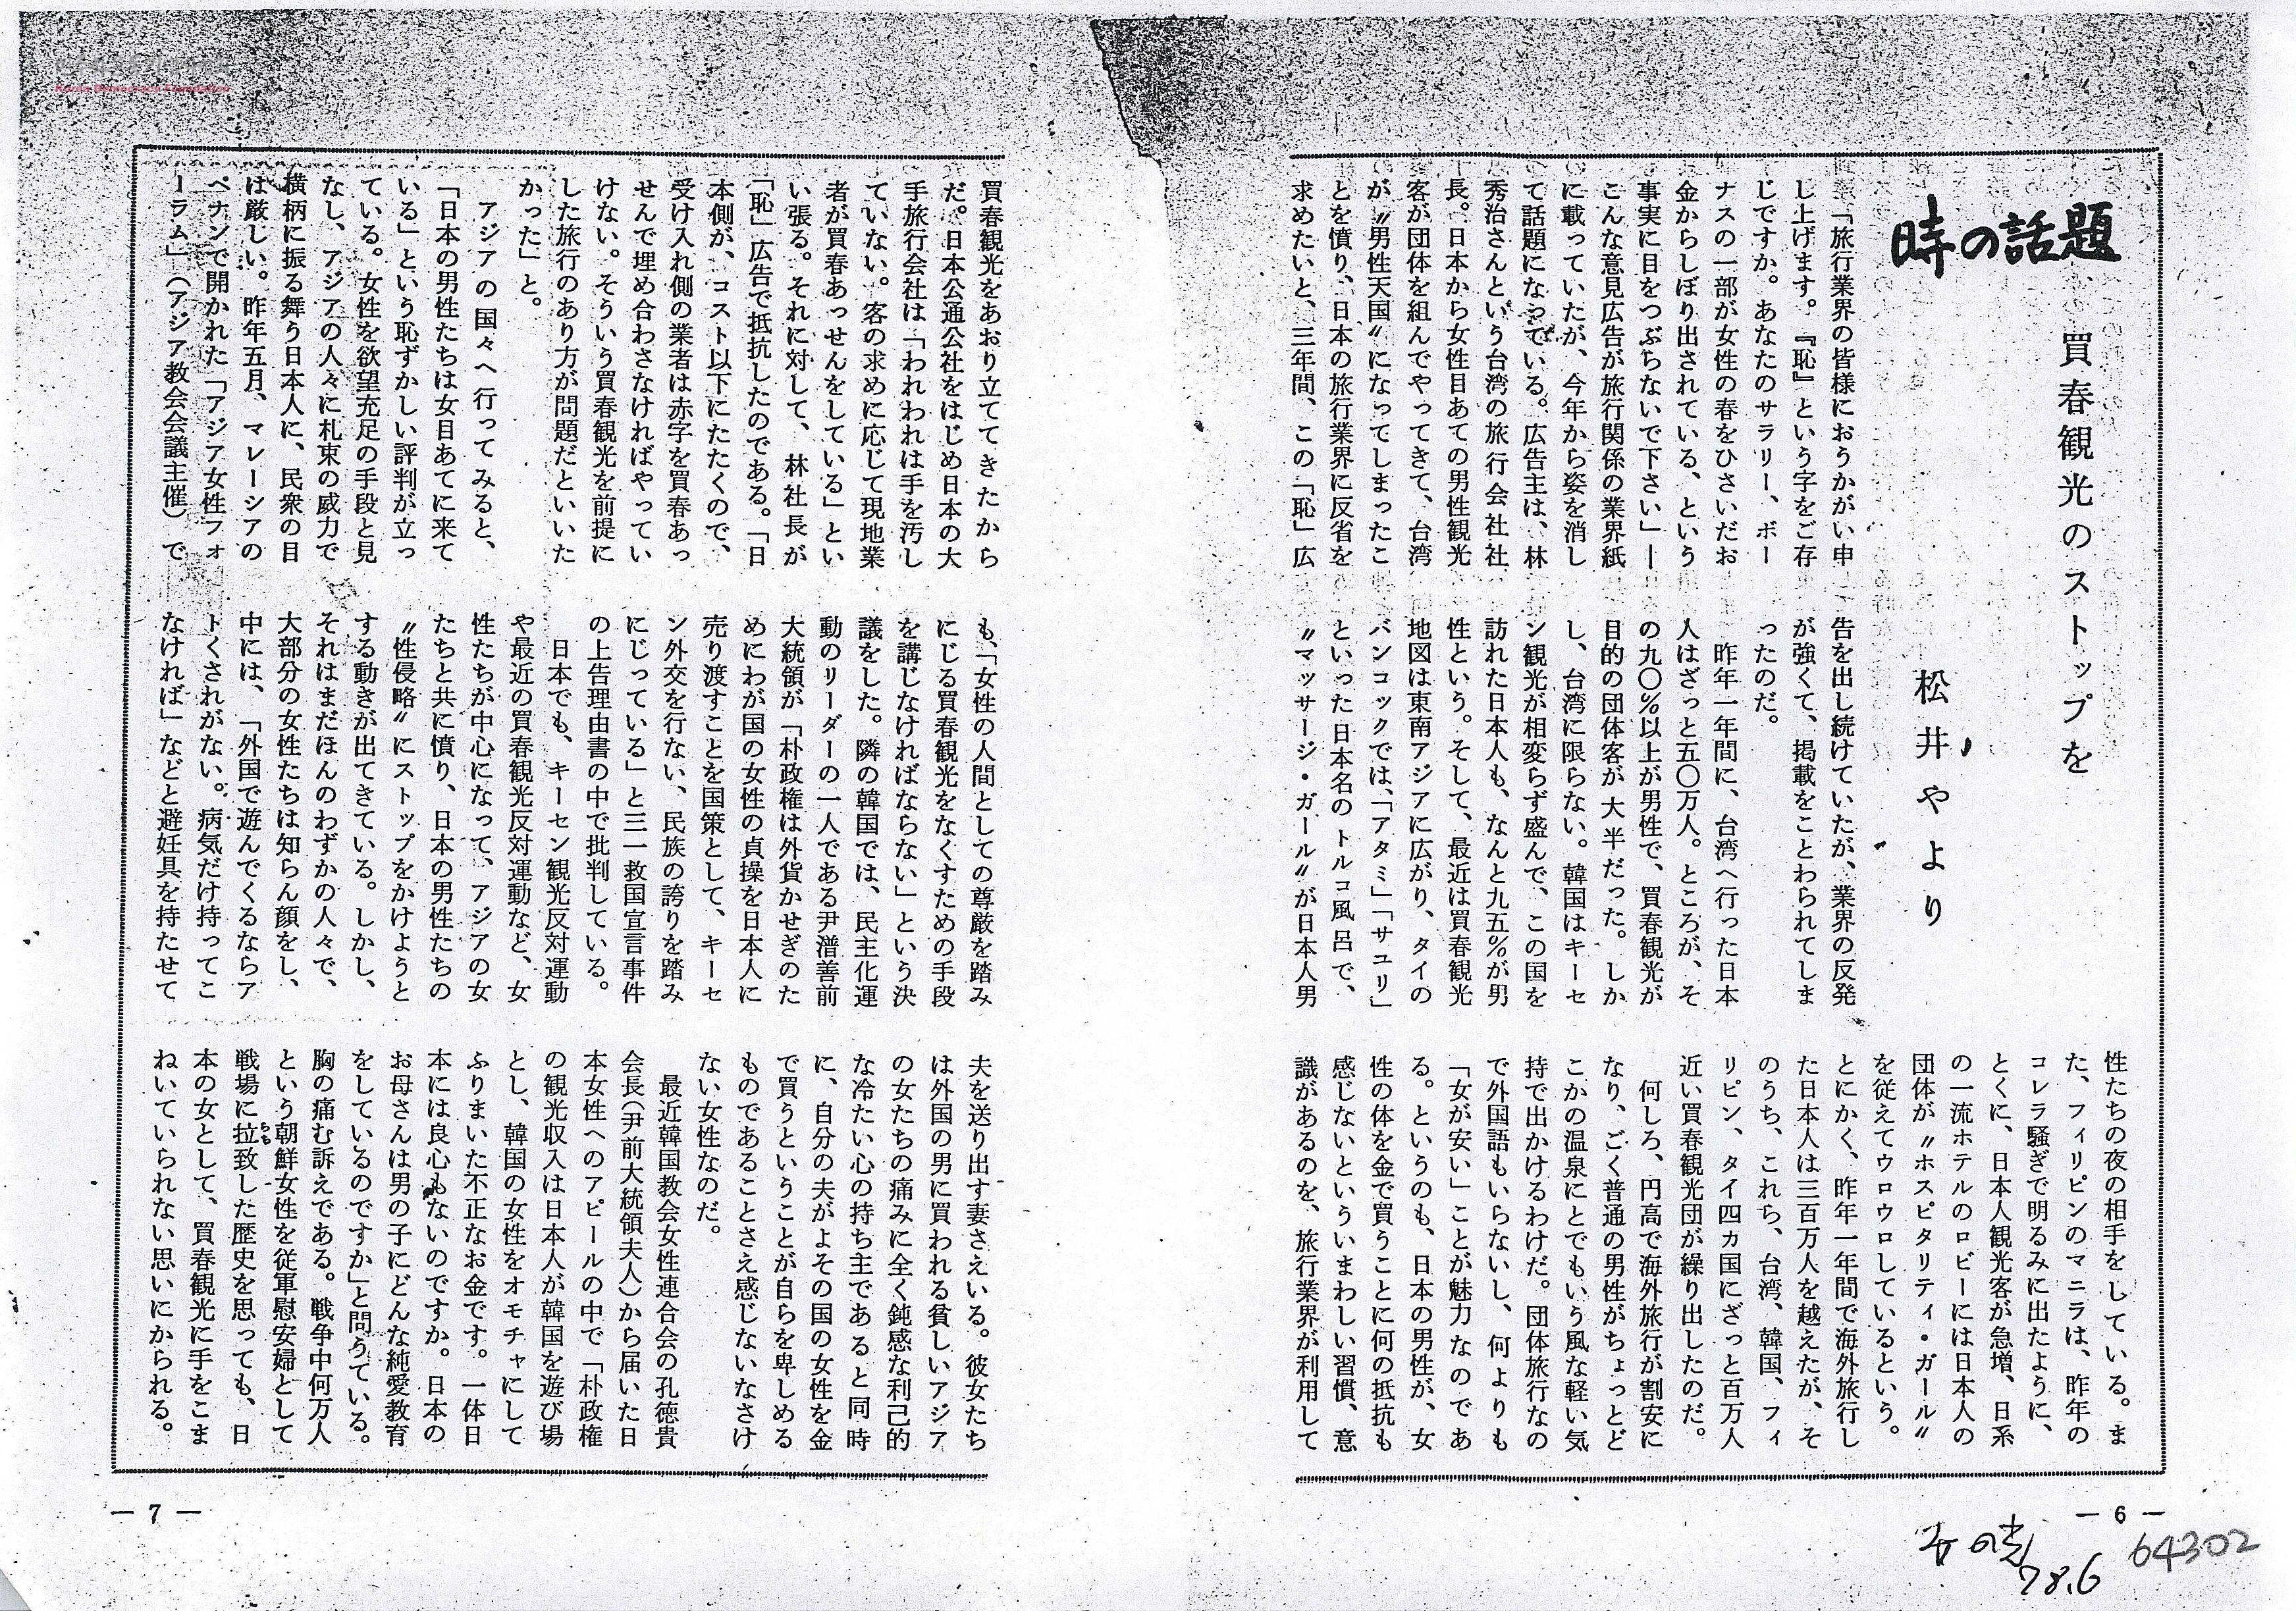 時の話題
買春観光のストップを
松井やより
「旅行業界の皆様におうかがい申
し上げます。『恥』という字をご存
じですか。あなたのサラリー、ボー
ナスの一部が女性の春をひさいだお
金からしぼり出されている、という
事実に目をつぶらないで下さい」―
こんな意見広告が旅行関係の業界紙
に載っていたが、今年から姿を消し
て話題になっている。広告主は、林
秀治さんという台湾の旅行会社社
長。日本から女性目あての男性観光
客が団体を組んでやってきて、台湾
が〝男性天国〟になってしまったこ
とを憤り、日本の旅行業界に反省を
求めたいと、三年間、この「恥」広
告を出し続けていたが、業界の反発
が強くて、掲載をことわられてしま
ったのだ。
昨年一年間に、台湾へ行った日本
人はざっと五〇万人。ところが、そ
の九〇％以上が男性で、買春観光が
目的の団体客が大半だった。しか
し、台湾に限らない。韓国はキーセ
ン観光が相変らず盛んで、この国を
訪れた日本人も、なんと九五％が男
性という。そして、最近は買春観光
地図は東南アジアに広がり、タイの
バンコックでは、「アタミ」「サユリ」
といった日本名のトルコ風呂で、
〝マッサージ・ガール〟が日本人男
性たちの夜の相手をしている。ま
た、フィリピンのマニラは、昨年の
コレラ騒ぎで明るみに出たように、
とくに、日本人観光客が急増、日系
の一流ホテルのロビーには日本人の
団体が〝ホスピタリティ・ガール〟
を従えてウロウロしているという。
とにかく、昨年一年間で海外旅行し
た日本人は三百万人を越えたが、そ
のうち、これら、台湾、韓国、フィ
リピン、タイ四カ国にざっと百万人
近い買春観光団が繰り出したのだ。
何しろ、円高で海外旅行が割安に
なり、ごく普通の男性がちょっとど
こかの温泉にとでもいう風な軽い気
持で出かけるわけだ。団体旅行なの
で外国語もいらないし、何よりも
「女が安い」ことが魅力なのであ
る。というのも、日本の男性が、女
性の体を金で買うことに何の抵抗も
感じないといういまわしい習慣、意
識があるのを、旅行業界が利用して
― 6 ―
買春観光をあおり立ててきたから
だ。日本公通公社をはじめ日本の大
手旅行会社は「われわれは手を汚し
ていない。客の求めに応じて現地業
者が買春あっせんをしている」とい
い張る。それに対して、林社長が
「恥」広告で抵抗したのである。「日
本側が、コスト以下にたたくので、
受け入れ側の業者は赤字を買春あっ
せんで埋め合わさなければやってい
けない。そういう買春観光を前提に
した旅行のあり方が問題だといいた
かった」と。
アジアの国々へ行ってみると、
「日本の男性たちは女目あてに来て
いる」という恥ずかしい評判が立っ
ている。女性を欲望充足の手段と見
なし、アジアの人々に札束の威力で
横柄に振る舞う日本人に、民衆の目
は厳しい。昨年五月、マレーシアの
ペナンで開かれた「アジア女性フォ
ーラム」（アジア教会会議主催）で
も、「女性の人間としての尊厳を踏み
にじる買春観光をなくすための手段
を講じなければならない」という決
議をした。隣の韓国では、民主化運
動のリーダーの一人である尹潽善前
大統領が「朴政権は外貨かせぎのた
めにわが国の女性の貞操を日本人に
売り渡すことを国策として、キーセ
ン外交を行ない、民族の誇りを踏み
にじっている」と三一救国宣言事件
の上告理由書の中で批判している。
日本でも、キーセン観光反対運動
や最近の買春観光反対運動など、女
性たちが中心になって、アジアの女
たちと共に憤り、日本の男性たちの
〝性侵略〟にストップをかけようと
する動きが出てきている。しかし、
それはまだほんのわずかの人々で、
大部分の女性たちは知らん顔をし、
中には、「外国で遊んでくるならア
トくされがない。病気だけ持ってこ
なければ」などと避妊具を持たせて
夫を送り出す妻さえいる。彼女たち
は外国の男に買われる貧しいアジア
の女たちの痛みに全く鈍感な利己的
な冷たい心の持ち主であると同時
に、自分の夫がよその国の女性を金
で買うということが自らを卑しめる
ものであることさえ感じないなさけ
ない女性なのだ。
最近韓国教会女性連合会の孔徳貴
会長（尹前大統領夫人）から届いた日
本女性へのアピールの中で「朴政権
の観光収入は日本人が韓国を遊び場
とし、韓国の女性をオモチャにして
ふりまいた不正なお金です。一体日
本には良心もないのですか。日本の
お母さんは男の子にどんな純愛教育
をしているのですか」と問うている。
胸の痛む訴えである。戦争中何万人
という朝鮮女性を従軍慰安婦として
戦場に拉致した歴史を思っても、日
本の女として、買春観光に手をこま
ねいていられない思いにかられる。
― 7 ―
78.6
64302